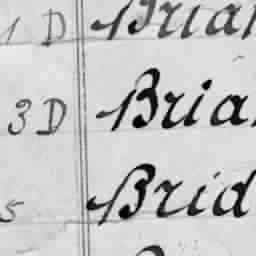 1 D Brian
3 D Brian
5 Brid